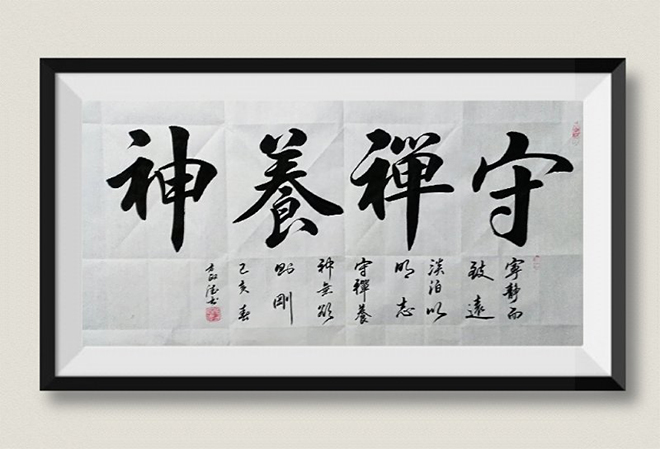 守禪養神
寧靜而
致遠
淡泊以
明志
守禪養
神無欲
則剛
己亥春